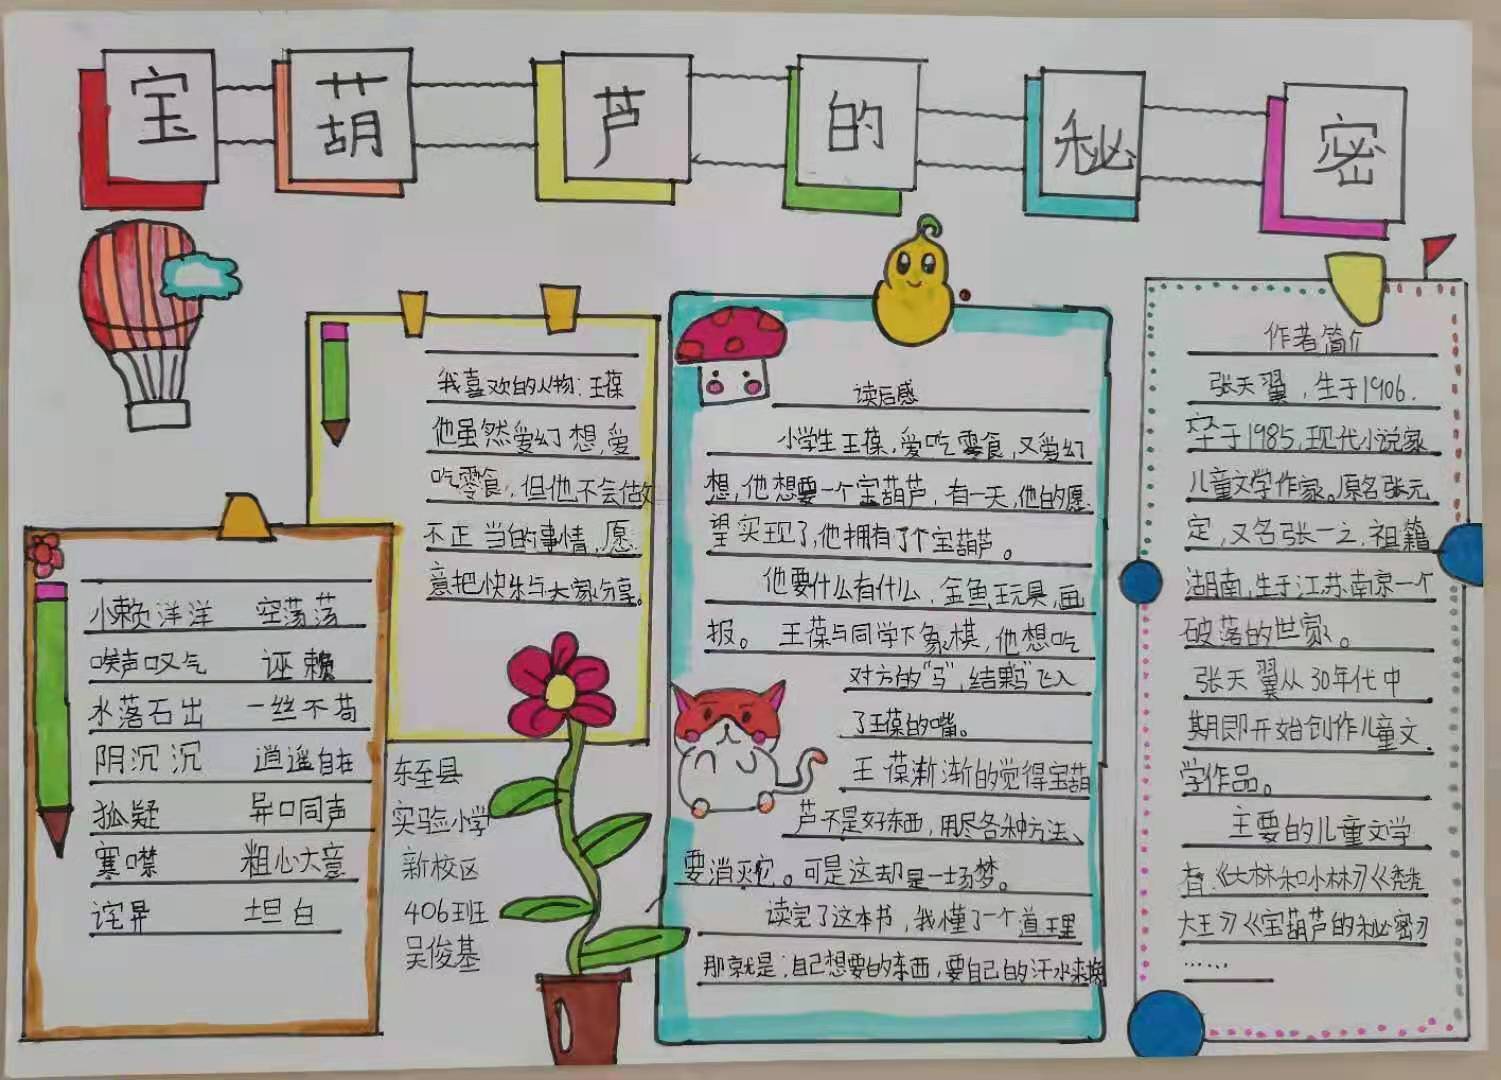 宝葫芦的秘密
小赖洋洋 空荡荡
唉声叹气 诬赖
水落石出 一丝不苟
阴沉沉 逍遥自在
狐疑 异口同声
寒噤 粗心大意
诧异 坦白
我喜欢的人物:王葆
他虽然爱幻想,爱
吃零食,但他不会做
不正当的事情,愿
意把快乐与大家分享。
东至县
实验小学
新校区
406班
吴俊基
读后感
小学生王葆,爱吃零食,又爱幻
想,他想要一个宝葫芦,有一天,他的愿
望实现了,他拥有了个宝葫芦。
他要什么有什么,金鱼,玩具,画
报。王葆与同学下象棋,他想吃
对方的“马”,结果“马”飞入
了王葆的嘴。
王葆渐渐的觉得宝葫
芦不是好东西,用尽各种方法、
要消灭它。可是这却是一场梦。
读完了这本书,我懂了一个道理
那就是:自己想要的东西,要自己的汗水来换
作者简介
张天翼,生于1906.
卒于1985,现代小说家
儿童文学作家。原名张元
定,又名张一之,祖籍
湖南,生于江苏南京一个
破落的世家。
张天翼从30年代中
期即开始创作儿童文
学作品。
主要的儿童文学
有《大林和小林》《秃秃
大王》《宝葫芦的秘密》
……